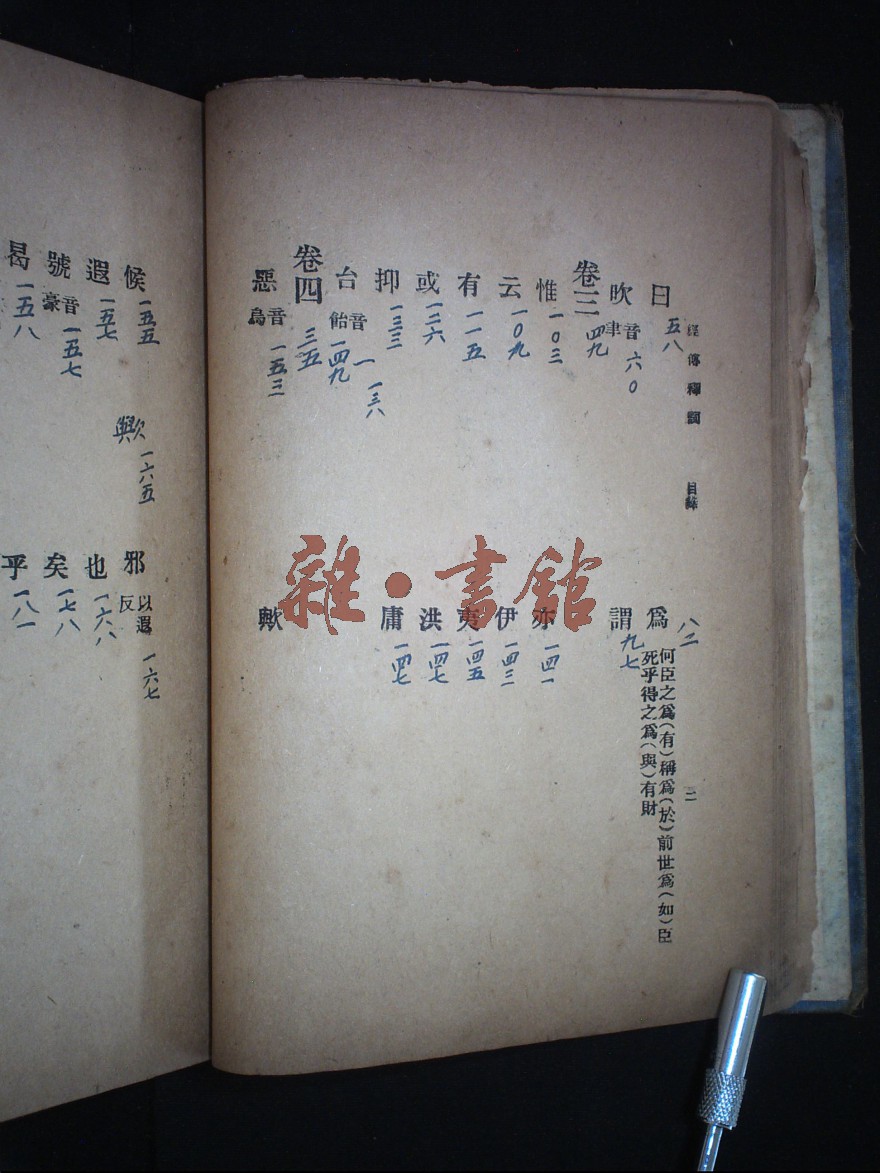 經傳釋詞 目錄 二
曰 五八 爲 八二 何臣之爲(有)稱爲(於)前世爲(如)臣
死乎得之爲(與)有財
欥 音聿 六〇 謂 九七
卷三 四九
惟 一〇三 亦 一四一
云 一〇九 伊 一四三
有 一一五 夷 一四五
或 一二六 洪 一四七
抑 一三三 一三八 庸 一四七
台 音飴 一四九
卷四 三五
惡 音烏 一五三 歟
侯 一五五 歟 一六五 邪 以遮反 一六七
遐 一五七 也 一六八
號 音豪 一五七 矣 一七八
曷 一五八 乎 一八一
雜·書館